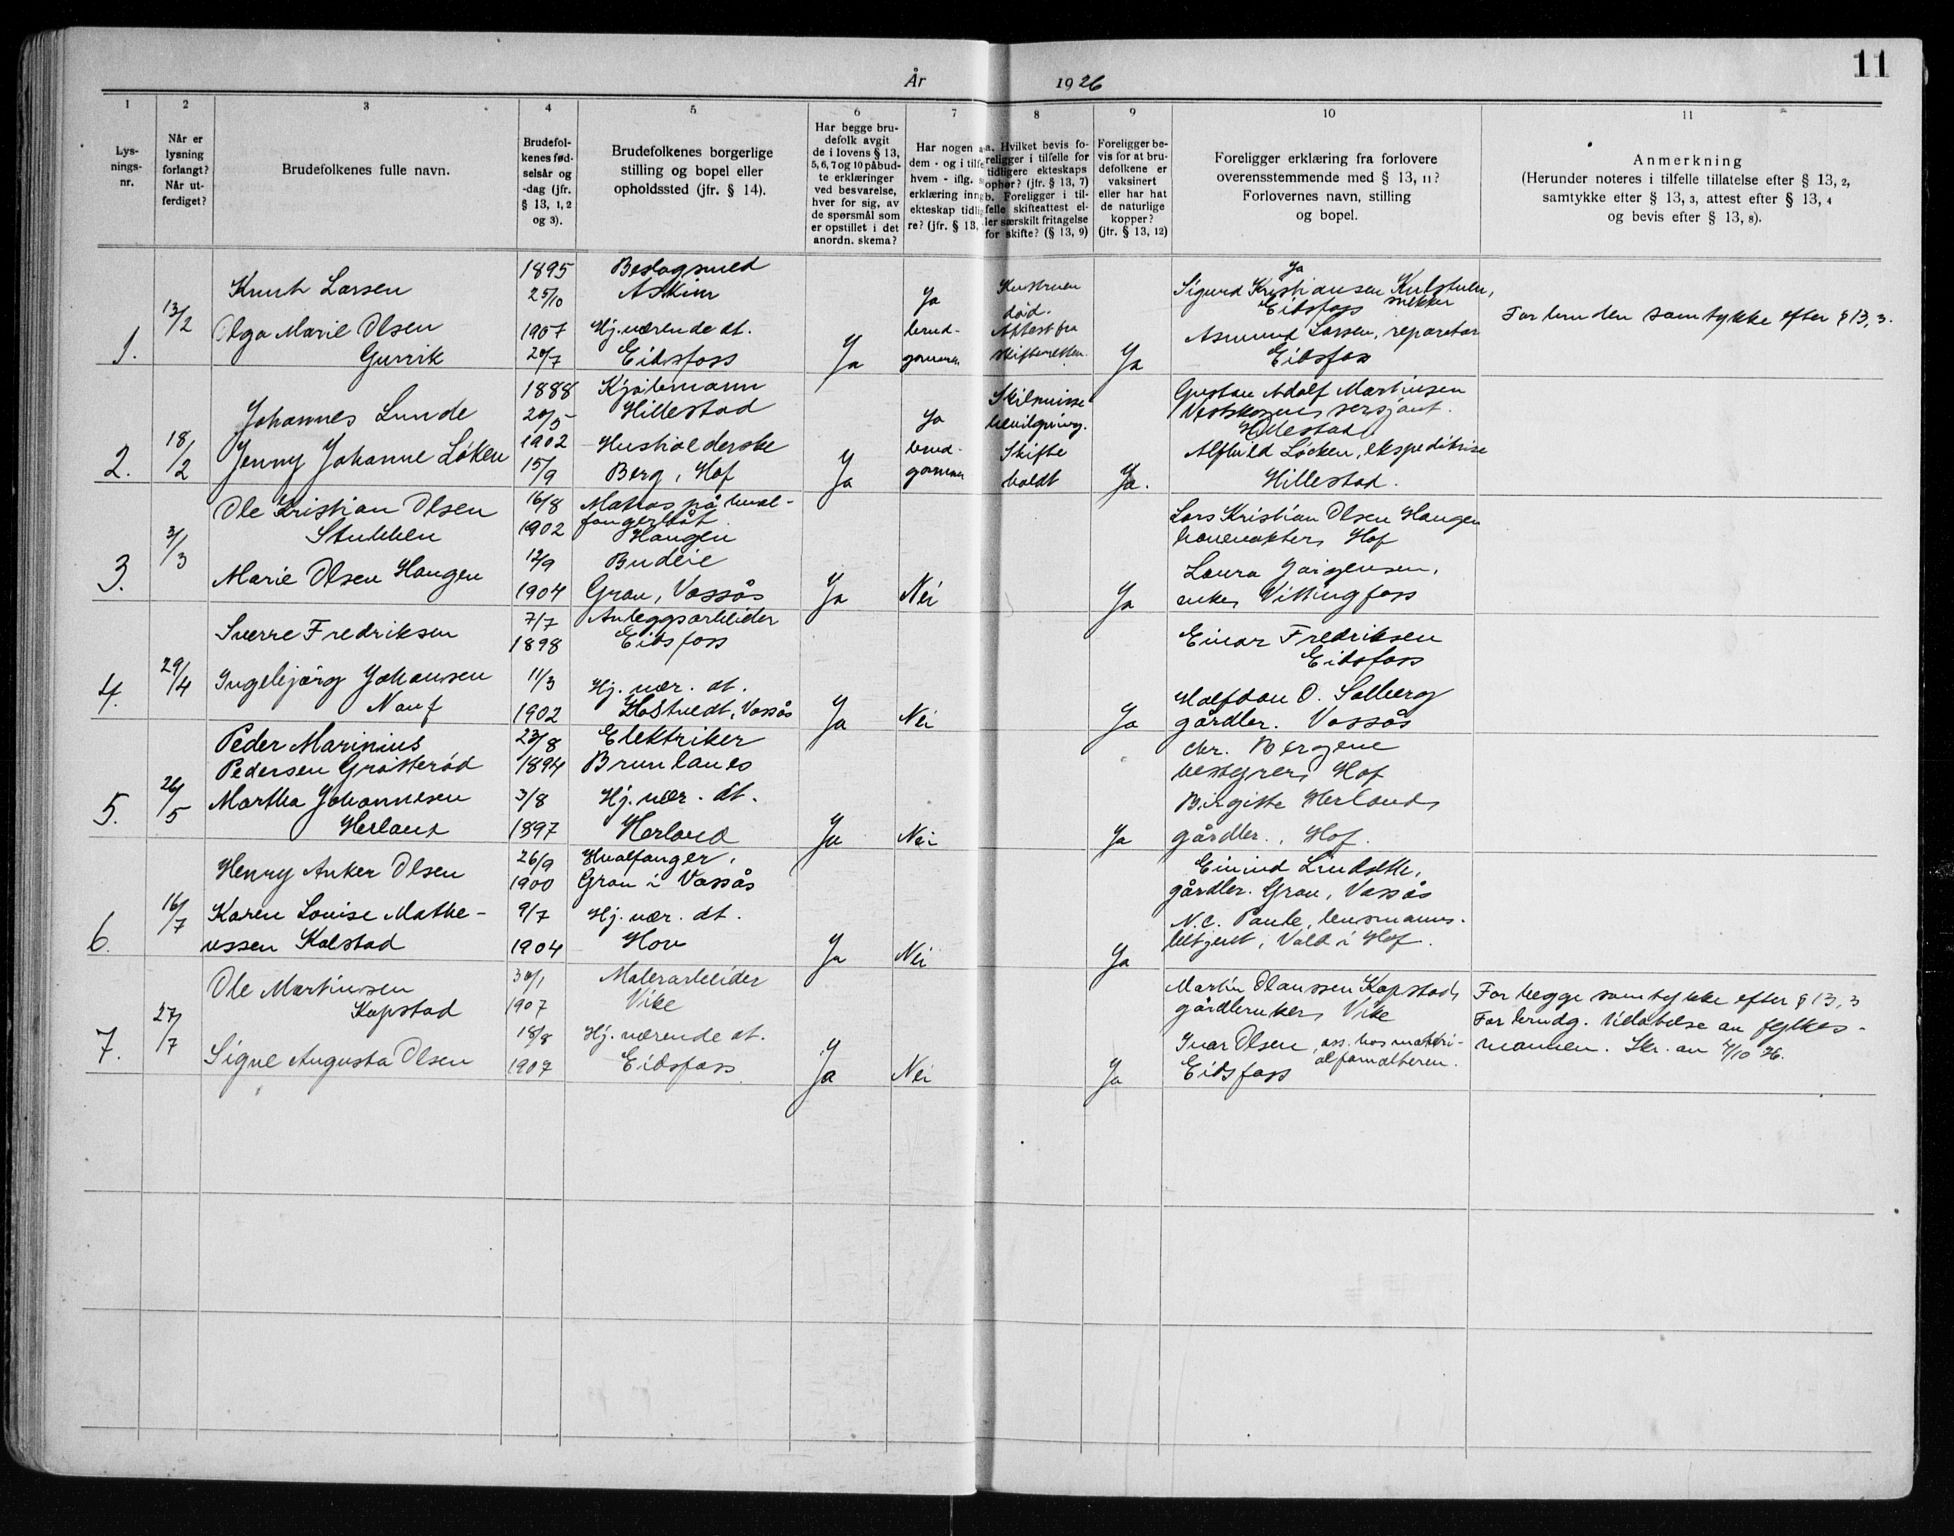 11
År 1926
1 2 3 4 5 6 7 8 9 10 11
Lys-
nings-
nr.
Når er
lysning
forlangt?
Når ut-
ferdiget?
Brudefolkenes fulle navn.
Brudefol-
kenes fød-
selsår og
-dag (jfr.
§ 13, 1, 2
og 3).
Brudefolkenes borgerlige
stilling og bopel eller
opholdssted (jfr. § 14).
Har begge bru-
defolk avgit
de i lovens § 13,
5, 6, 7 og 10 påbud-
te erklæringer
ved besvarelse,
hver for sig, av
de spørsmål som
er opstillet i det
anordn. skema?
Har nogen a
dem - og i tilfe
hvem - iflg. s
erklæring inng
ekteskap tidlig
re? (jfr. § 13,
a. Hvilket bevis fo-
religger i tilfelle for
tidligere ekteskaps
ophør? (jfr. § 13, 7)
b. Foreligger i til-
felle skifteattest el-
ler særskilt fritagelse
for skifte? (§ 13, 9)
Foreligger be-
vis for at bru-
defolkene er
vaksinert
eller har hat
de naturlige
kopper?
(jfr. § 13, 12)
Foreligger erklæring fra forlovere
overensstemmende med § 13, 11?
Forlovernes navn, stilling
og bopel.
Anmerkning
(Herunder noteres i tilfelle tillatelse efter § 13, 2,
samtykke efter § 13, 3, attest efter § 13, 4
og bevis efter § 13, 8).
1.
13/2
Knut Larsen
Olga Marie Olsen
Gurrik
1895
25/10
1907
20/7
Beslagsmed
Askim
Hj. værende dt.
Eidsfoss
Ja
Ja
brud-
gommen
Hustruen
død.
Attest fra
skifteretten
Ja
Ja
Sigurd Kristiansen
Eidsfoss snekker
Asmund Larsen, reparatør
Eidsfoss
For bruden samtykke efter § 13, 3.
2.
18/2
Johannes Lunde
Jenny Johanne Løken
1888
20/5
1902
15/9
Kjøbmann
Hillestad
Husholderske
Berg, Hof
Ja
Ja
brud-
gommen
Skilmisse
bevilgning.
Skifte
holdt
Ja.
Gustav Adolf Martinsen
sersjant.
Hillestad
Alfhild Løcken, ekspeditrise
Hillestad.
3.
3/3
Ole Kristian Olsen
Stubben
Marie Olsen Haugen
16/8
1902
12/9
1904
Matros på hval-
fangerbåt.
Haugen
Budeie
Grau, Vassås
Ja
Nei
Ja
Lars Kristian Olsen Haugen
banevokter, Hof
Laura Jørgensen,
enke, Vittingfoss
4.
29/4
Sverre Fredriksen
Ingebjørg Johansen
Nauf
7/7
1898
11/3
1902
Anleggsarbeider
Eidsfoss
Hj. vær. dt.
Hostvedt, Vassås
Ja
Nei
Ja
Einar Fredriksen
Eidsfoss
Halfdan O. Solberg
gårdbr. Vassås
5.
26/5
Peder Marinius
Pedersen Grøtterød
Martha Johannesen
Herland
23/8
1894
3/8
1897
Elektriker
Brunlanes
Hj. vær. dt.
Herland
Ja
Nei
Ja
Chr. Bergene
bestyrer, Hof
Birgitte Herland,
gårdbr., Hof.
6.
16/7
Henry Anker Olsen
Karen Louise Mathe-
ussen Kolstad
26/9
1900
9/7
1904
Hvalfanger,
Grau i Vassås
Hj. vær. dt.
Hov
Ja
Nei
Ja
Eivind Lindsethe,
gårdbr. Grau, Vassås
N.C. Paule, lensmanns-
betjent, Vold i Hof.
7.
27/7
Ole Martinsen
Kopstad
Signe Augusta Olsen
30/1
1907
18/8
1907
Malerarbeider
Vike
Hj. værende dt.
Eidsfoss
Ja
Nei
Ja
Martin Olaussen Kopstad,
gårdbruker, Vike
Ivar Olsen, ass. hos materi-
alforvalteren.
Eidsfoss
For begge samtykke efter § 13, 3
For brudg. tillatelse av fylkes-
mannen. Skr. av 4/10 26.